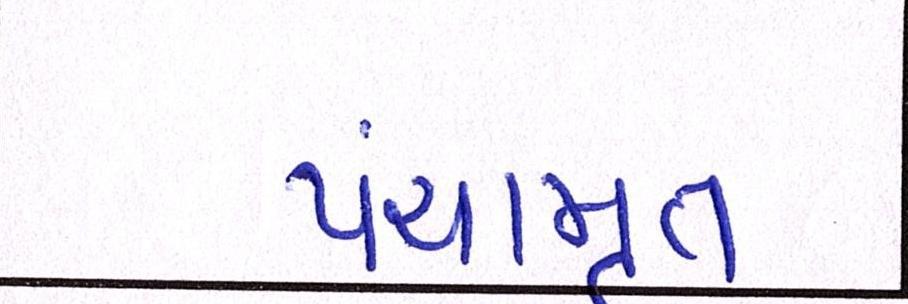 પંચામૃત